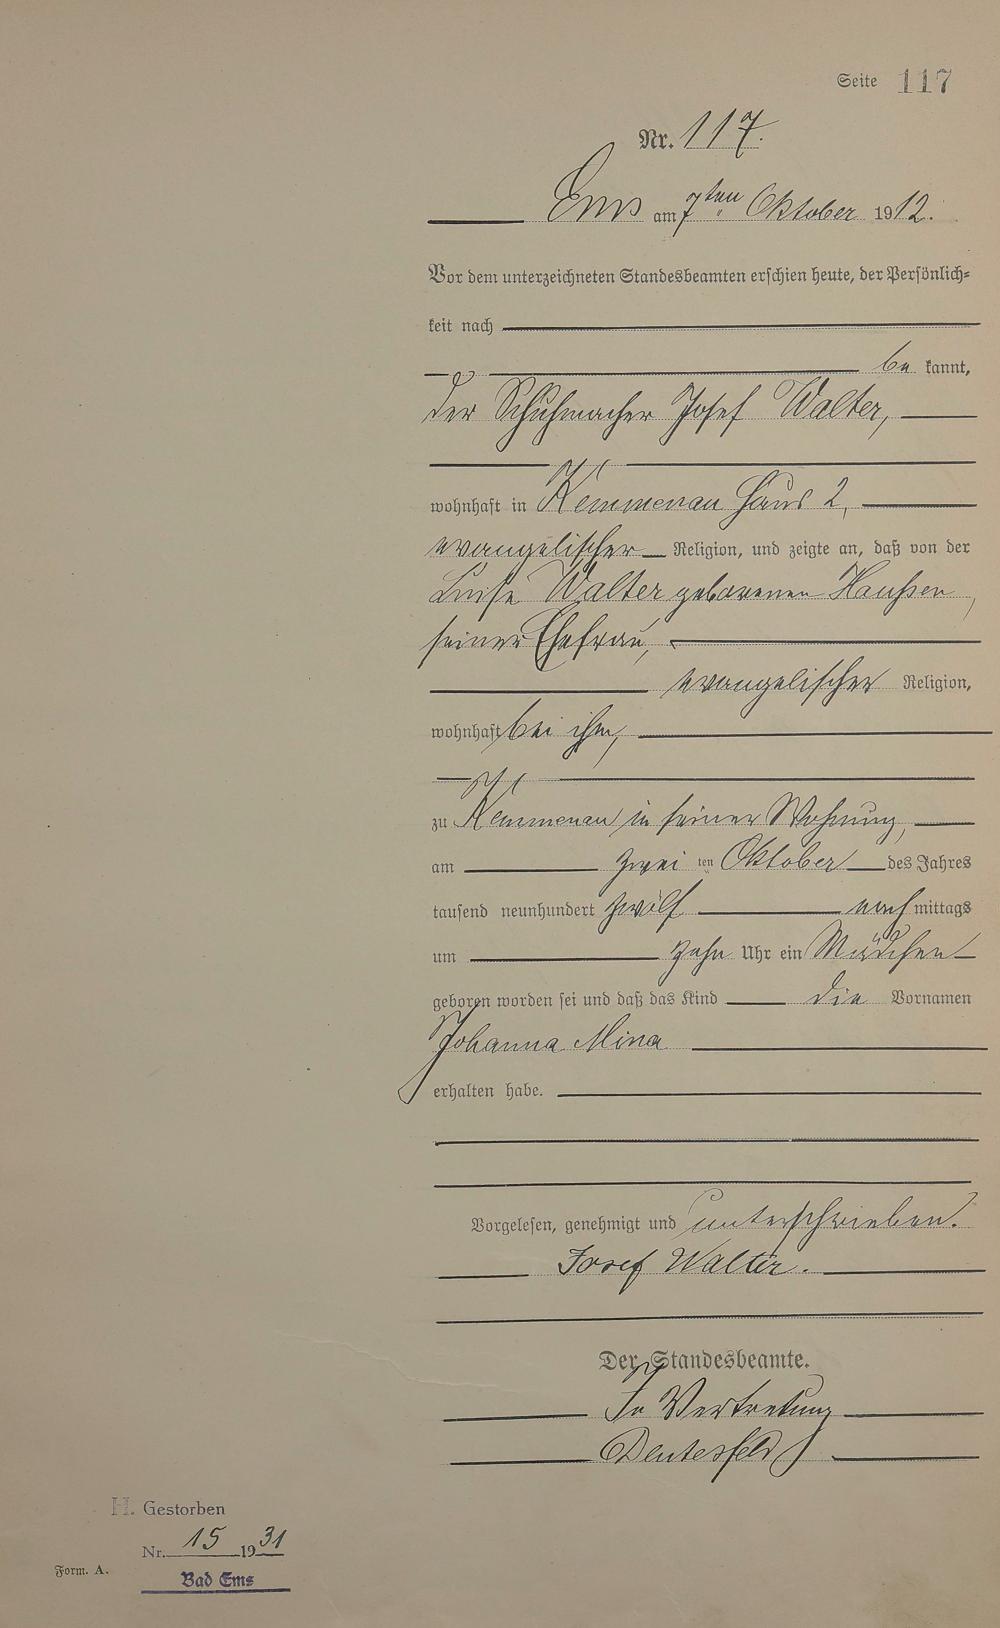 Seite 117
Nr. 117.
Ems am 7ten Oktober 1912.
Vor dem unterzeichneten Standesbeamten erschien heute, der Persönlich-
keit nach
be kannt,
der Schuhmacher Josef Walter,
wohnhaft in Kemmenau Haus 2,
evangelischer Religion, und zeigte an, daß von der
Luise Walter geborenen
seiner Ehefrau,
evangelischer Religion,
wohnhaft bei ihm,
zu Kemmenau in seiner Wohnung,
am zwei ten Oktober des Jahres
tausend neunhundert zwölf nach mittags
um zehn Uhr ein Mädchen
geboren worden sei und daß das Kind die Vornamen
Johanna Mina
erhalten habe.
Vorgelesen, genehmigt und unterschrieben.
Josef Walter.
Der Standesbeamte.
In Vertretung
H. Gestorben
Nr. 15 1931
Form. A.
Bad Ems